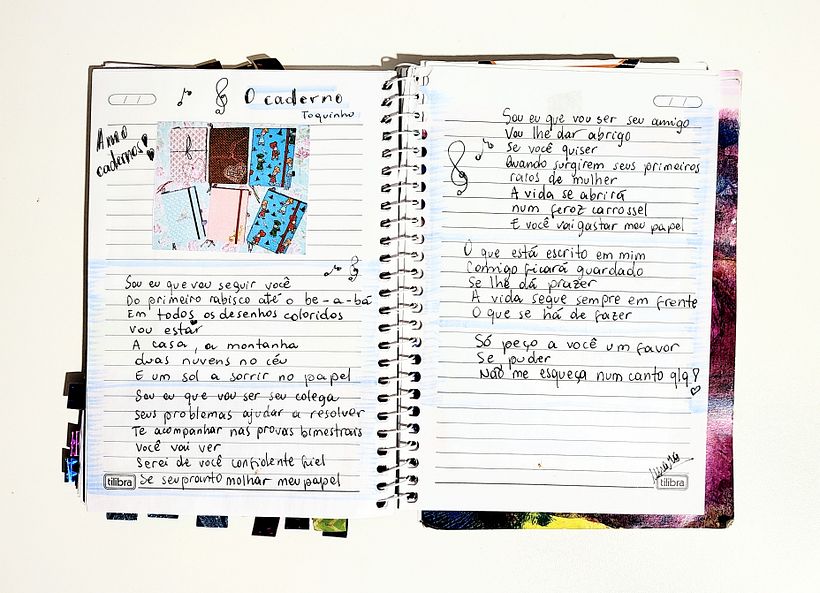 O caderno
Toquinho
Amo
cadernos!
Sou eu que vou seguir você
Do primeiro rabisco até o be-a-bá
Em todos os desenhos coloridos
vou estar
A casa, a montanha
duas nuvens no céu
E um sol a sorrir no papel
Sou eu que vou ser seu colega
seus problemas ajudar a resolver
Te acompanhar nas provas bimestrais
Você vai ver
Serei de você confidente fiel
Se seu pranto molhar meu papel
tilibra
Sou eu que vou ser seu amigo
Vou lhe dar abrigo
Se você quiser
Quando surgirem seus primeiros
raios de mulher
A vida se abrirá
num feroz carrossel
E você vai gastar meu papel
O que está escrito em mim
Comigo ficará guardado
Se lhe dá prazer
A vida segue sempre em frente
O que se há de fazer
Só peço a você um favor
Se puder
Não me esqueça num canto qlq?
tilibra